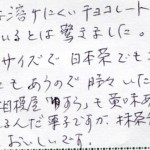 溶けにくいチョコレート
いるとは驚きました。
サイズで日本茶でも
もあうので時々いた
相模屋
るんだ菓子ですが、抹茶
おいしいです。